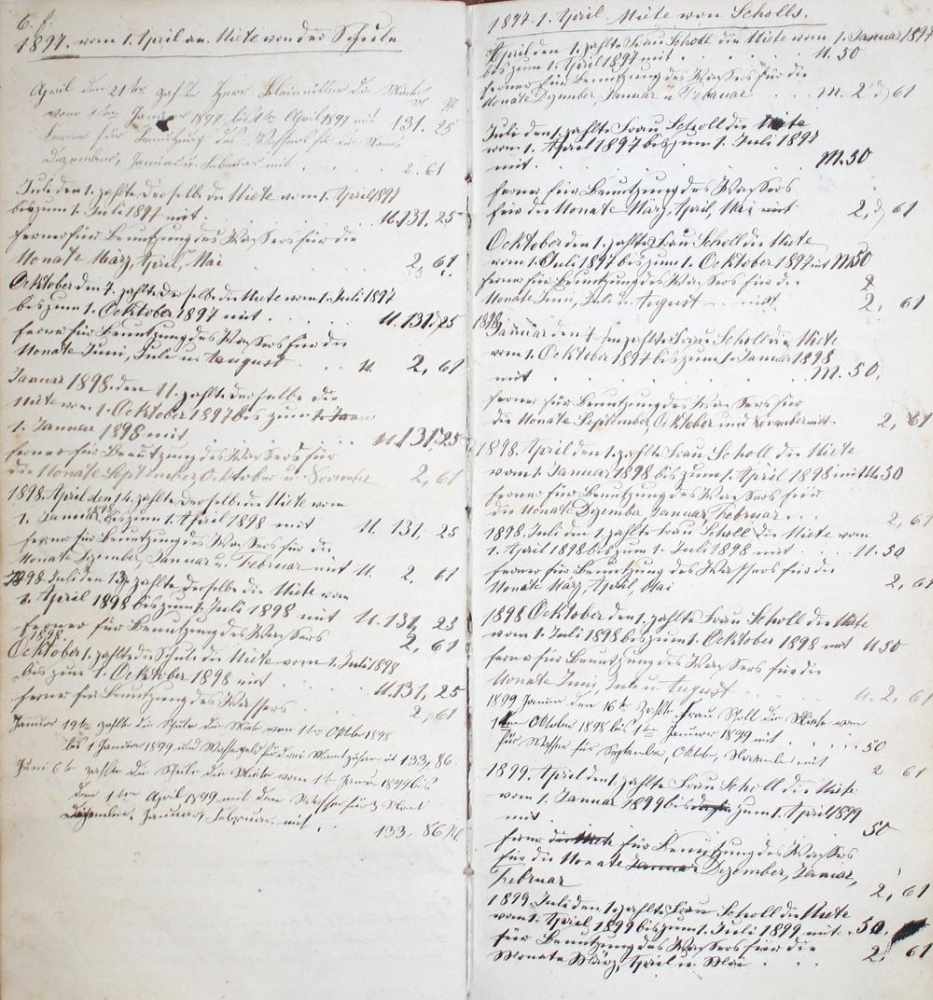 6.
1897. vom 1. April an. Miete von der Schule
April den 21ten zahlte Herr Kleinmüller die Miete
vom 1ten Januar 1897 bis 1ten April 1897 mit 131. 25
ferner für Benutzung des Wassers für die Monate
Dezember, Januar u. Februar mit . . . 2. 61
Juli den 1. zahlte derselbe die Miete vom 1. April 1897
bis zum 1. Juli 1897 mit . . . M. 131. 25
ferner für Benutzung des Wassers für die
Monate März, April, Mai . . . 2, 61
Ocktober den 7. zahlte derselbe die Miete vom 1. Juli 1897
bis zum 1. Ocktober 1897 mit . . . M. 131. 25
ferner für Benutzung des Wassers für die
Monate Juni, Juli u. August . . . M. 2, 61
Januar 1898 den 11. zahlte derselbe die
Miete vom 1. Ocktober 1897 bis zum
1. Januar 1898 mit . . . M 131, 25
ferner für Benützung des Wassers für
die Monate September Ocktober u November 2, 61
1898 April den 14. zahlte derselbe die Miete vom
1. Januar bis zum 1. April 1898 mit M. 131, 25
ferner für Benutzung des Wassers für die
Monate Dezember, Januar u. Februar mit M. 2, 61
1898 Juli den 13. zahlte derselbe die Miete vom
1. April 1898 bis zum 1. Juli 1898 mit M. 131, 25
ferner für Benutzung des Wassers 2, 61
1898
Ocktober 1. zahlte die Schule die Miete vom 1. Juli 1898
bis zum 1. Ocktober 1898 mit . . . M. 131, 25
ferner für Benutzung des Wassers . . . 2, 61
Januar 19ten zahlte die Schule die Miete vom 1ten Oktbr 1898
bis 1 Januar 1899 und Wassergeld für drei Monate 133, 86
Juni 6ten zahlte die Schule die Miete vom 1ten Januar 1899 bis
den 1ten April 1899 mit dem Wasser für 3 Monat
Dezember, Januar, Februar mit . 133, 86
1897. 1. April Miete von Scholls.
April den 1. zahlte Frau Scholl die Miete vom 1. Januar 1897
bis zum 1. April 1897 mit . . . M. 50
ferner für Benutzung des Wassers für die
Monate Dezember, Januar u Februar . . . M. 2, 61
Juli den 1. zahlte Frau Scholl die Miete
vom 1. April 1897 bis zum 1. Juli 1897
mit . . . M. 50
ferner für Benutzung des Wassers
für die Monate März, April, Mai mit 2, 61
Ocktober den 1. zahlte Frau Scholl die Miete
vom 1. Juli 1897 bis zum 1. Ocktober 1897 mit M 50
ferner für Benutzung des Wassers für die
Monate Juni, Juli u. August mit 2, 61
1898
Januar den 1. zahlte Frau Scholl die Miete
vom 1. Ocktober 1897 bis zum 1. Januar 1898
mit . . . M. 50.
ferner für Benutzung des Wassers für
die Monate September, Ocktober und November mit 2, 61
1898 April den 1. zahlte Frau Scholl die Miete
vom 1. Januar 1898 bis zum 1. April 1898 mit M. 50
ferner für Benutzung des Wassers für
die Monate Dezember Januar Februar . . . 2, 61
1898. Juli den 1. zahlte Frau Scholl die Miete vom
1. April 1898 bis zum 1. Juli 1898 mit . . . M. 50
ferner für Benutzung des Wassers für die
Monate März, April, Mai 2, 61
1898 Ocktober den 1. zahlte Frau Scholl die Miete
vom 1. Juli 1898 bis zum 1. Ocktober 1898 mit M 50
ferner für Benutzung des Wassers für die
Monate Juni, Juli u. August . . . M. 2, 61
1899 Januar den 16ten zahlte Frau Scholl die Miete vom
1ten Oktober 1898 bis 1ten Januar 1899 mit . . . 50
für Wasser für September, Oktbr, November mit 2 61
1899. April den 1. zahlte Frau Scholl die Miete
vom 1. Januar 1899 bis zum 1. April 1899
mit . . . 50
ferner die Miete für Benutzung des Wassers
für die Monate Januar Dezember, Januar,
Februar 2, 61
1899 Juli den 1. zahlte Frau Scholl die Miete
vom 1. April 1899 bis zum 1. Juli 1899 mit . 50.
für Benutzung des Wassers für die
Monate März, April u. Mai . . . 2. 61